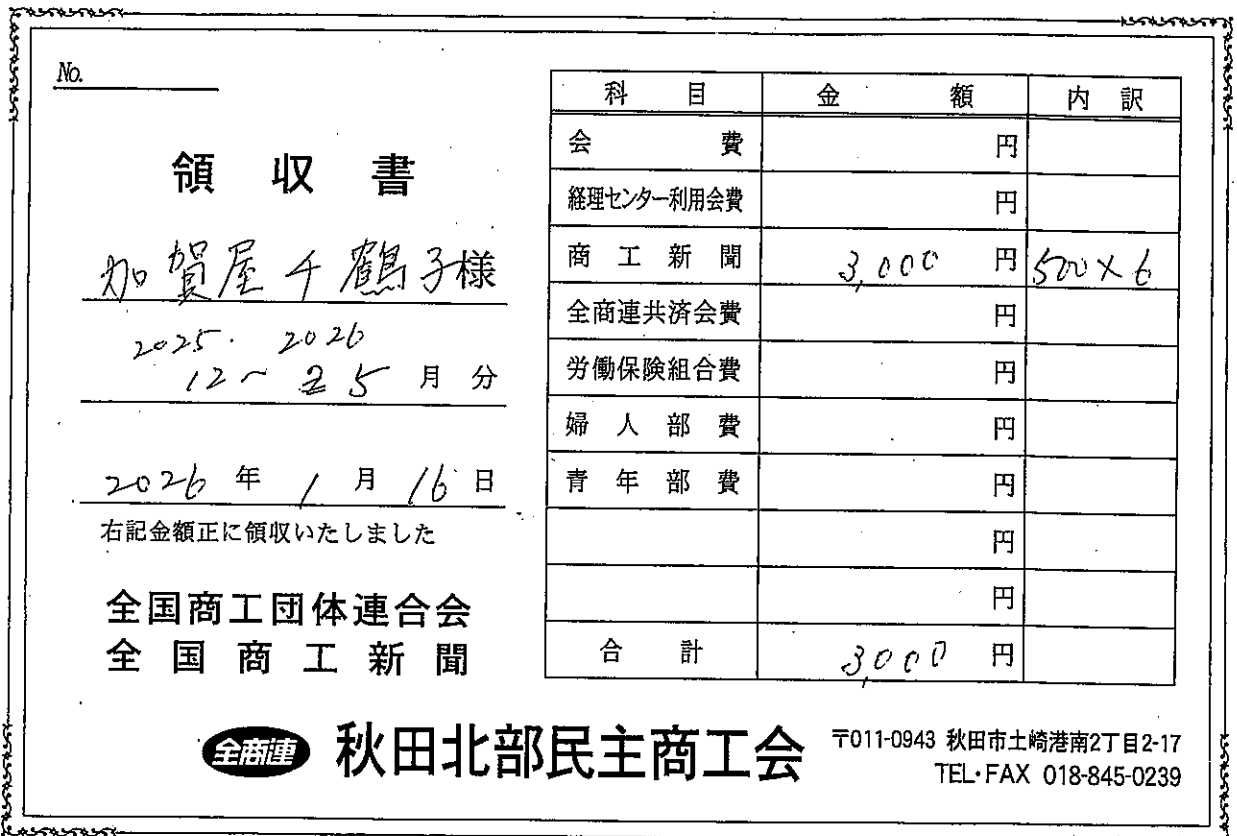 No.
領収書
加賀屋千鶴子様
2025. 2026
12~ 5 月分
2026年 1月 16日
右記金額正に領収いたしました
全国商工団体連合会
全国商工新聞
科目 金額 内訳
会費 円
経理センター利用会費 円
商工新聞 3,000 円 500×6
全商連共済会費 円
労働保険組合費 円
婦人部費 円
青年部費 円
円
円
合計 3,000 円
全商連 秋田北部民主商工会
〒011-0943 秋田市土崎港南2丁目2-17
TEL・FAX 018-845-0239